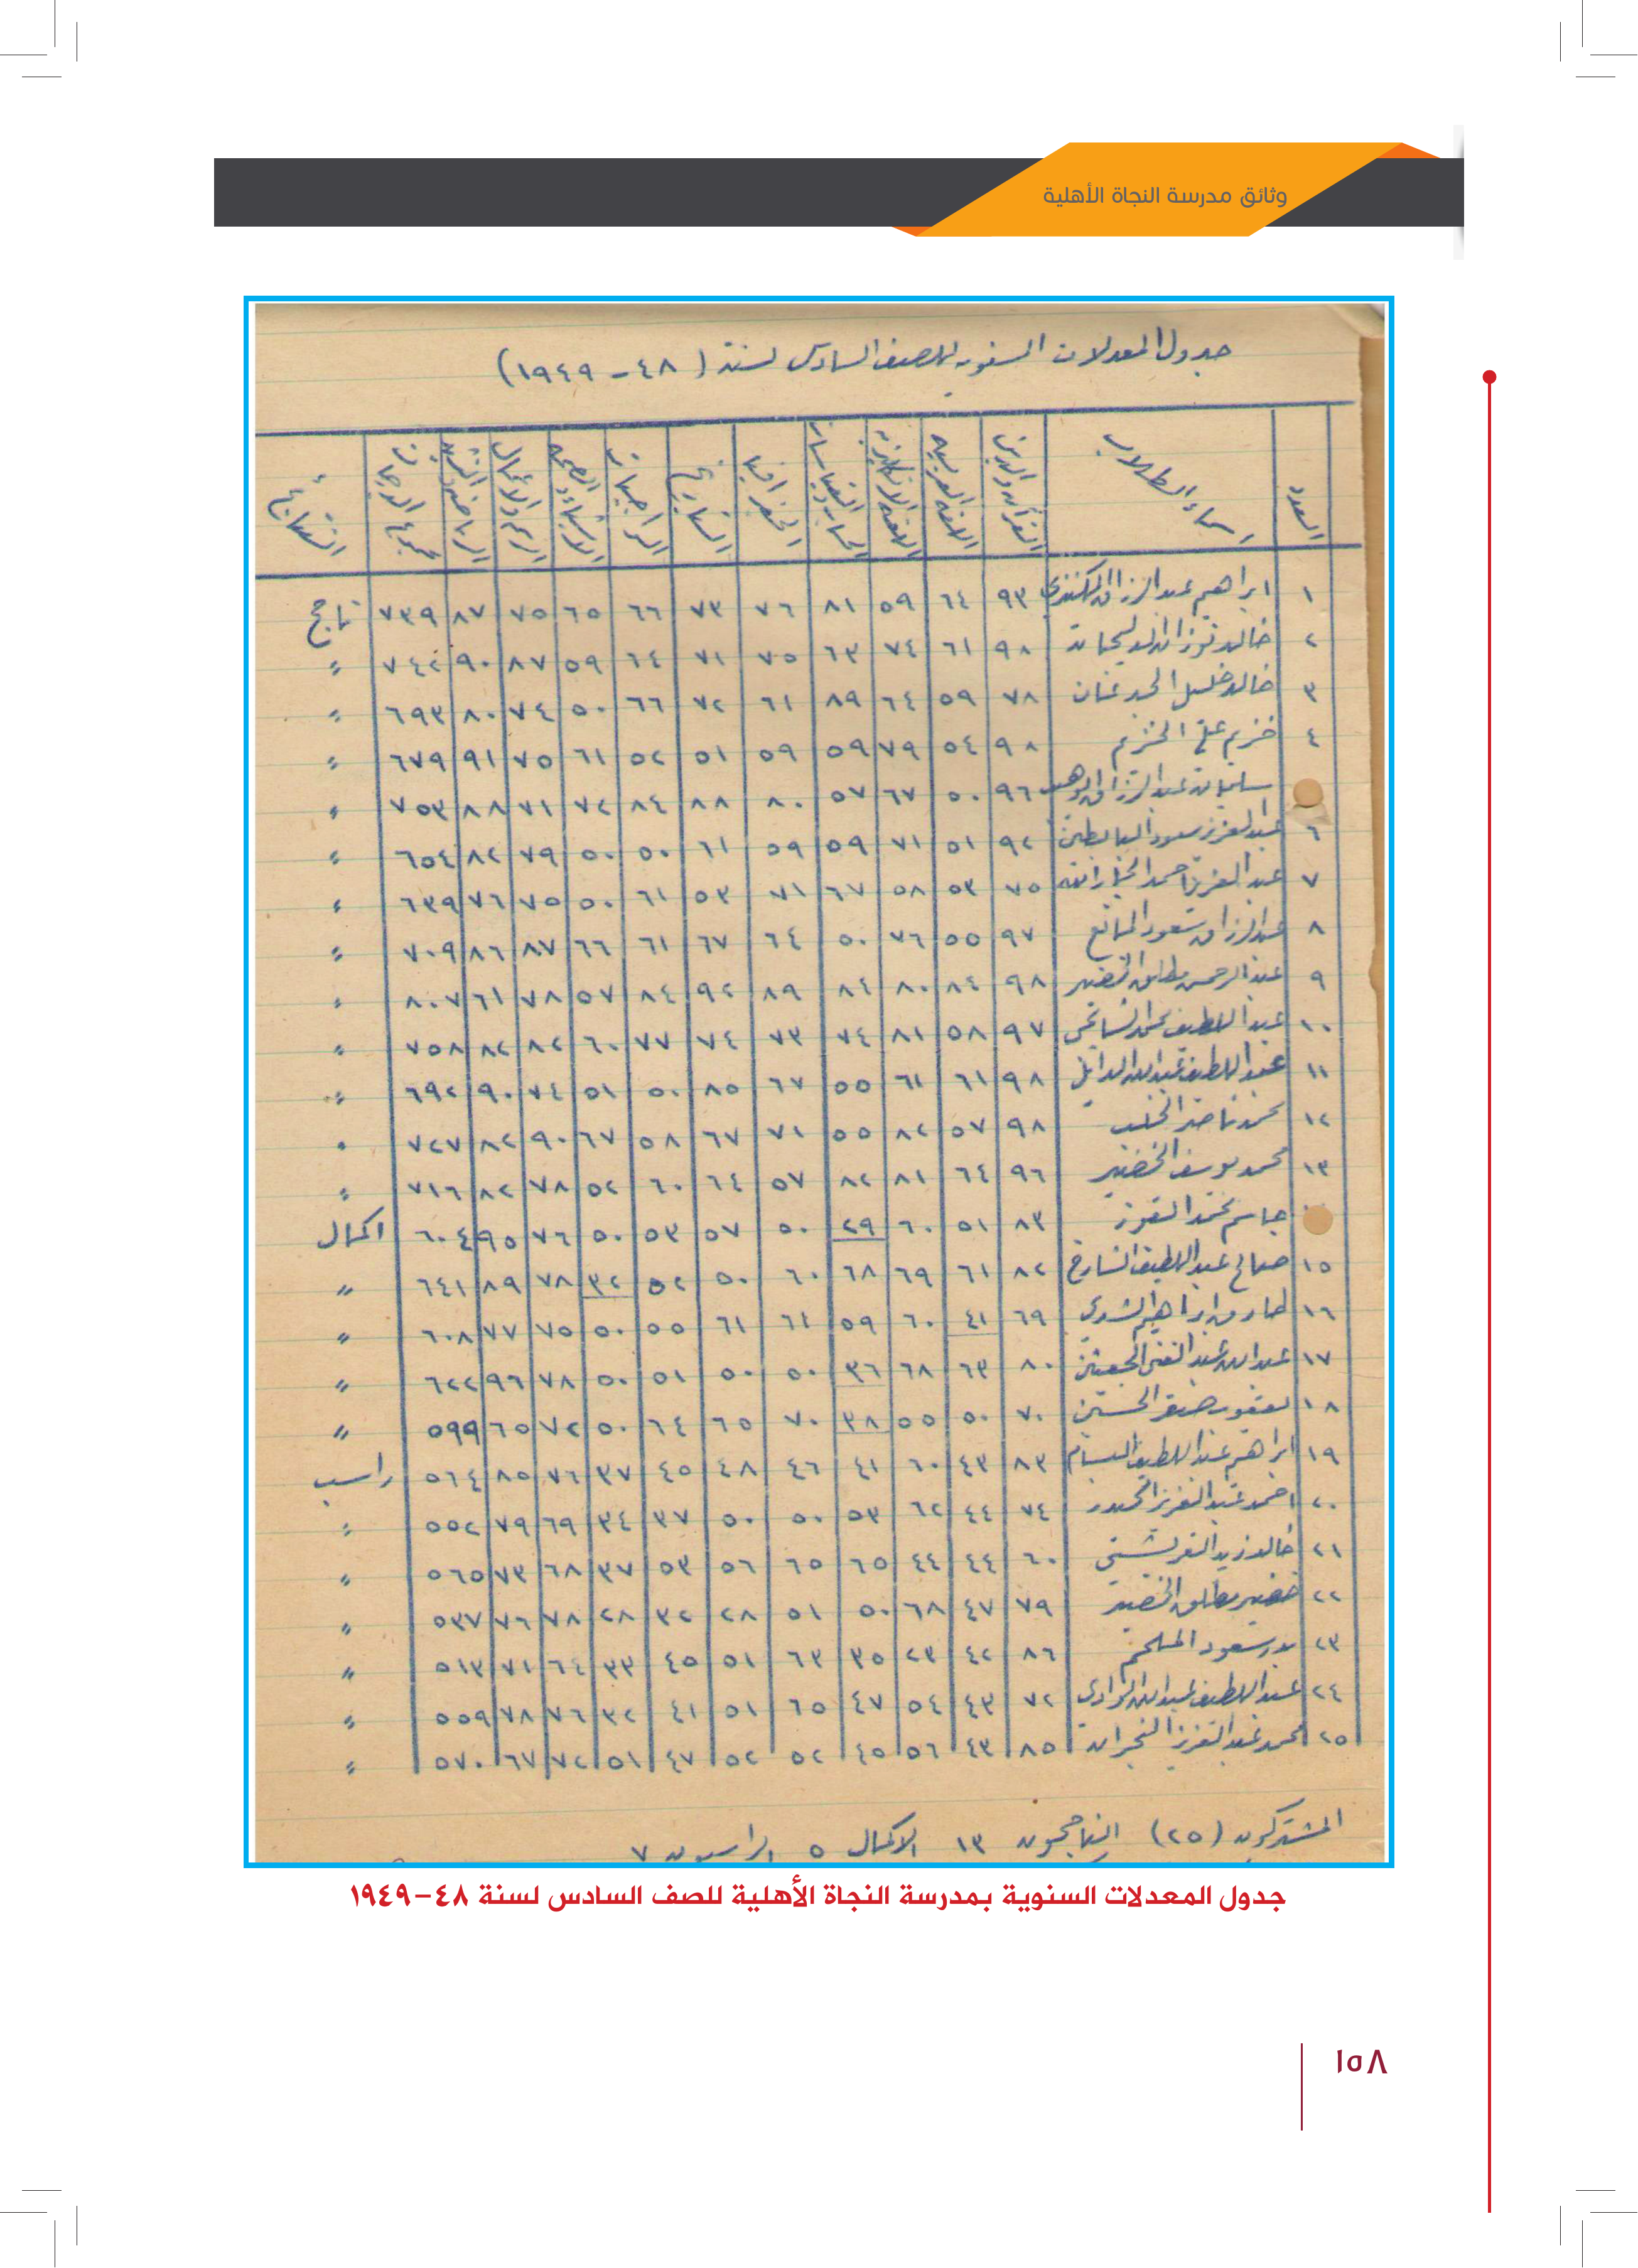 وثائق مدرسة النجاة الأهلية
جدول المعدلات السنويه للصف السادس لسنة (٤٨ - ١٩٤٩)
العدد اسماء الطلاب القرآن والدين اللغة العربيه اللغة الانكليزيه الحساب الجغرافيا التاريخ الواجبات الاشياء والصحه الرسم والاعمال الرياضه مجموع الدرجات النتائج
١ ابراهيم عبد الرزاق ٩٣ ٦٤ ٥٩ ٨١ ٧٦ ٧٣ ٦٦ ٦٥ ٧٥ ٨٧ ٧٣٩ ناجح
٢ خالد ٩٨ ٦١ ٧٤ ٦٣ ٧٥ ٧١ ٦٤ ٥٩ ٨٧ ٩٠ ٧٤٢ 〃
٣ خالد خليل ٧٨ ٥٩ ٦٤ ٨٩ ٦١ ٧٢ ٦٦ ٥٠ ٧٤ ٨٠ ٦٩٣ 〃
٤ خزيم علي الخزيم ٩٨ ٥٤ ٧٩ ٥٩ ٥٩ ٥١ ٥٢ ٦١ ٧٥ ٩١ ٦٧٩ 〃
سليمان عبد الرزاق ٩٦ ٥٠ ٦٧ ٥٧ ٨٠ ٨٨ ٨٤ ٧٢ ٧١ ٨٨ ٧٥٣ 〃
٦ عبد العزيز سعود البابطين ٩٢ ٥١ ٧١ ٥٩ ٥٩ ٦١ ٥٠ ٥٠ ٧٩ ٨٢ ٦٥٤ 〃
٧ عبد العزيز احمد الجارالله ٧٥ ٥٣ ٥٨ ٦٧ ٧١ ٥٣ ٦١ ٥٠ ٧٥ ٧٦ ٦٣٩ 〃
٨ عبد الرزاق سعود المانع ٩٧ ٥٥ ٧٦ ٥٠ ٦٤ ٦٧ ٦١ ٦٦ ٨٧ ٨٦ ٧٠٩ 〃
٩ عبد الرحمن مطلق الخضير ٩٨ ٨٤ ٨٠ ٨٤ ٨٩ ٩٢ ٨٤ ٥٧ ٧٨ ٦١ ٨٠٧ 〃
١٠ عبد اللطيف محمد ٩٧ ٥٨ ٨١ ٧٤ ٧٣ ٧٤ ٧٧ ٦٠ ٨٢ ٨٢ ٧٥٨ 〃
١١ عبد اللطيف عبد الله الدايل ٩٨ ٦١ ٦١ ٥٥ ٦٧ ٨٥ ٥٠ ٥١ ٧٤ ٩٠ ٦٩٢ 〃
١٢ محمد ناصر ٩٨ ٥٧ ٨٢ ٥٥ ٧١ ٦٧ ٥٨ ٦٧ ٩٠ ٨٢ ٧٢٧ 〃
١٣ محمد يوسف الخضير ٩٦ ٦٤ ٨١ ٨٢ ٥٧ ٦٤ ٦٠ ٥٢ ٧٨ ٨٢ ٧١٦ 〃
جاسم محمد الفوز ٨٣ ٥١ ٦٠ ٢٩ ٥٠ ٥٧ ٥٣ ٥٠ ٧٦ ٩٥ ٦٠٤ اكمال
١٥ صالح عبد اللطيف الشارخ ٨٢ ٦١ ٦٩ ٦٨ ٦٠ ٥٠ ٥٢ ٣٢ ٧٨ ٨٩ ٦٤١ 〃
١٦ طارق ابراهيم ٦٩ ٤١ ٦٠ ٥٩ ٦١ ٦١ ٥٥ ٥٠ ٧٥ ٧٧ ٦٠٨ 〃
١٧ عبد الله عبد الغني الجعيثن ٨٠ ٦٣ ٦٨ ٣٦ ٥٠ ٥٠ ٥١ ٥٠ ٧٨ ٩٦ ٦٢٢ 〃
١٨ يعقوب صقر الحسين ٧٠ ٥٠ ٥٥ ٣٨ ٧٠ ٦٥ ٦٤ ٥٠ ٧٢ ٦٥ ٥٩٩ 〃
١٩ ابراهيم عبد اللطيف البسام ٨٣ ٤٣ ٦٠ ٤١ ٤٦ ٤٨ ٤٥ ٣٧ ٧٦ ٨٥ ٥٦٤ راسب
٢٠ احمد عبد العزيز ٧٤ ٤٤ ٦٢ ٥٣ ٥٠ ٥٠ ٣٧ ٣٤ ٦٩ ٧٩ ٥٥٢ 〃
٢١ خالد زيد القريشي ٦٠ ٤٤ ٤٤ ٦٥ ٦٥ ٥٦ ٥٣ ٣٧ ٦٨ ٧٣ ٥٦٥ 〃
٢٢ خضير مطلق الخضير ٧٩ ٤٧ ٦٨ ٥٠ ٥١ ٢٨ ٣٢ ٢٨ ٧٨ ٧٦ ٥٣٧ 〃
٢٣ بدر سعود الملحم ٨٦ ٤٢ ٢٣ ٣٥ ٦٣ ٥١ ٤٥ ٣٣ ٦٤ ٧١ ٥١٣ 〃
٢٤ عبد اللطيف عبد الله الوادي ٧٢ ٤٣ ٥٤ ٤٧ ٦٥ ٥١ ٤١ ٣٢ ٧٦ ٧٨ ٥٥٩ 〃
٢٥ محمد عبد العزيز النجران ٨٥ ٤٣ ٥٦ ٤٥ ٥٢ ٥٢ ٤٧ ٥١ ٧٢ ٦٧ ٥٧٠ 〃
المشتركون (٢٥) الناجحون ١٣ الاكمال ٥ الراسبون ٧
جدول المعدلات السنوية بمدرسة النجاة الأهلية للصف السادس لسنة ٤٨-١٩٤٩
١٥٨